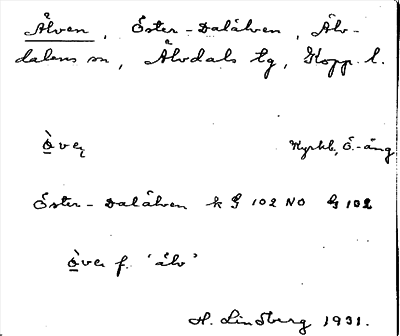 Älven, Öster-Dalälven, Älv-
dalens sn, Älvdals tg, Kopp. l.
Kyrkb, Ö.-äng
Öster-Dalälven k G 102 NO G 102
f. 'älv'
H. Lindberg 1931.